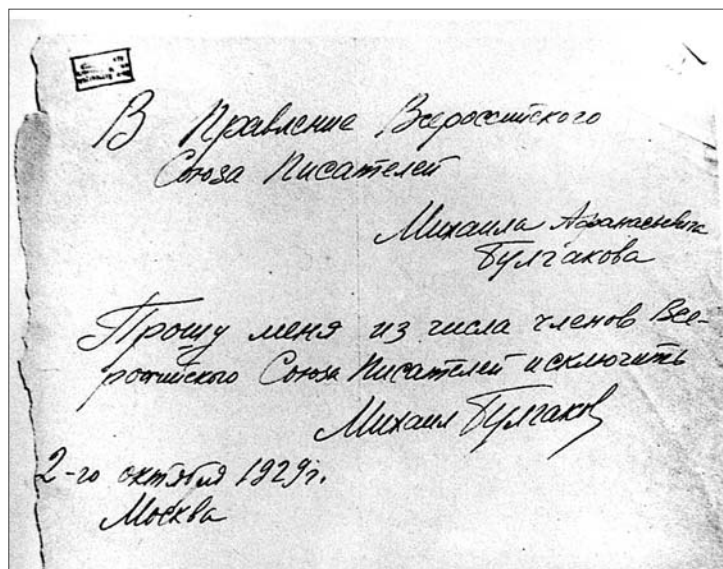 В Правление Всероссийского
Союза Писателей
Михаила Афанасьевича
Булгакова
Прошу меня из числа членов Все-
российского Союза Писателей исключить
Михаил Булгаков
2-го октября 1929 г.
Москва